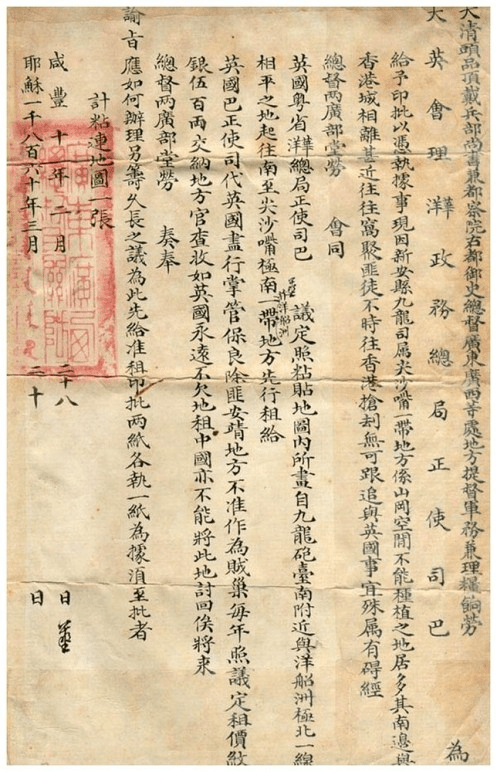 大清頭品頂戴兵部尚書兼都察院右都御史總督廣東廣西等處地方提督軍務兼理糧餉勞
大英會理韡政務總局正使司巴 為
給予印批以憑執據事現因新安縣九龍司屬尖沙嘴一帶地方係山岡空閒不能種植之地居多其南邊與
香港城相離甚近往往窩聚匪徒不時往香港搶刼無可跟追與英國事宜殊屬有碍經
總督兩廣部堂勞 會同
英國粵省韡總局正使司巴 議定照粘貼地圖內所畫自九龍砲臺南附近與洋船洲極北一線
相平之地起往南至尖沙嘴極南一帶地方先行租給
並洋船洲
英國巴正使司代英國盡行掌管保良除匪安靖地方不准作為賊巢每年照議定租價紋
銀伍百両交納地方官查收如英國永遠不欠地租中國亦不能將此地討回俟將來
總督兩廣部堂勞 奏奉
諭旨應如何辦理另籌久長之議為此先給准租印批兩紙各執一紙為據湏至批者
計粘連地圖一張
咸豐十年二月二十八日
耶穌一千八百六十年三月二十日